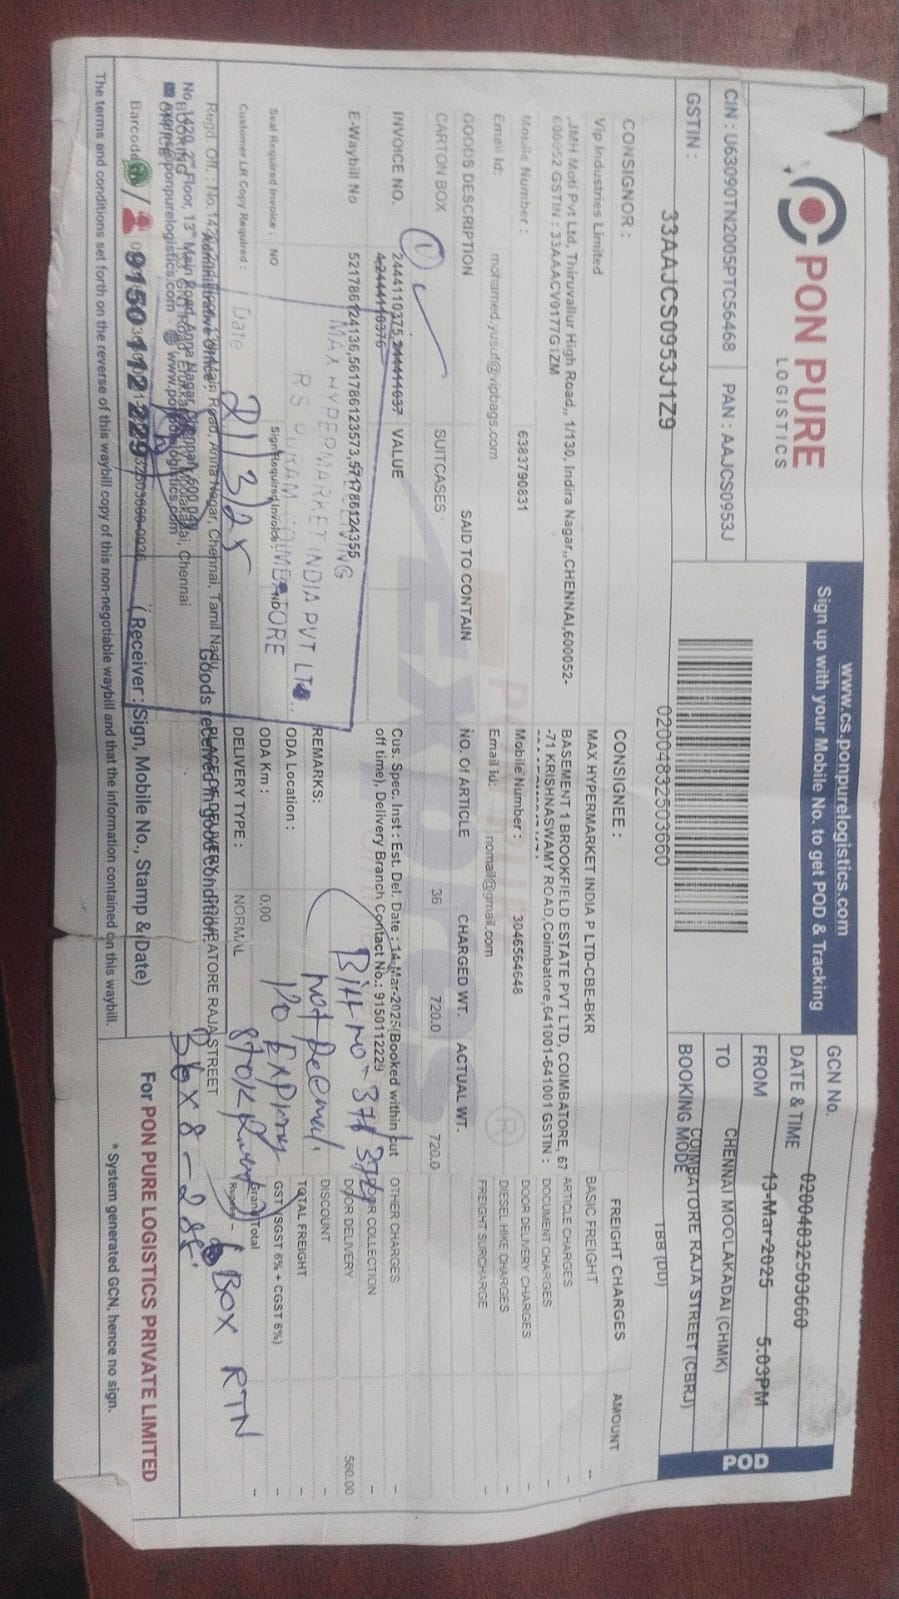 PON PURE
LOGISTICS
www.cs.ponpurelogistics.com
Sign up with your Mobile No. to get POD & Tracking
CIN : U63090TN2005PTC56468 PAN : AAJCS0953J
GSTIN : 33AAJCS0953J1Z9
02004832503660
GCN No. 02004832503660
DATE & TIME 13-Mar-2025 5:03PM
FROM CHENNAI MOOLAKADAI (CHMK)
TO COIMBATORE RAJA STREET (CBRJ)
BOOKING MODE TBB (DD)
POD
CONSIGNOR :
Vip Industries Limited
JMH Moti Pvt Ltd, Thiruvallur High Road,, 1/130, Indira Nagar,,CHENNAI,600052-
600052 GSTIN : 33AAACV0177G1ZM
Mobile Number : 6383790831
Email Id: mohamed.yusuf@vipbags.com
CONSIGNEE :
MAX HYPERMARKET INDIA P LTD-CBE-BKR
BASEMENT 1 BROOKFIELD ESTATE PVT LTD, COIMBATORE, 67
-71 KRISHNASWAMY ROAD,Coimbatore,641001-641001 GSTIN :
Mobile Number : 3046564648
Email id: nomail@gmail.com
FREIGHT CHARGES AMOUNT
BASIC FREIGHT --
ARTICLE CHARGES --
DOCUMENT CHARGES --
DOOR DELIVERY CHARGES --
DIESEL HIKE CHARGES --
FREIGHT SURCHARGE --
OTHER CHARGES --
DOOR COLLECTION --
DOOR DELIVERY 560.00
DISCOUNT --
TOTAL FREIGHT --
GST(SGST 6% + CGST 6%) --
Grand Total --
GOODS DESCRIPTION SAID TO CONTAIN NO. Of ARTICLE CHARGED WT. ACTUAL WT.
CARTON BOX SUITCASES 36 720.0 720.0
INVOICE NO. 2444110375, VALUE
E-Waybill No 521786124136,561786123573,571786124355
Cus. Spec. Inst: Est. Del. Date : 14-Mar-2025(Booked within cut
off time), Delivery Branch Contact No.: 9150112229
REMARKS:
ODA Location :
ODA Km : 0.00
DELIVERY TYPE : NORMAL
Seal Required Invoice : NO
Sign Required Invoice : NO
Customer LR Copy Required :
MAX HYPERMARKET INDIA PVT LTD..
RS PURAM COIMBATORE
Date 21/3/25
BOX RTN
36 X 8 -
PLACE OF DELIVERY : COIMBATORE RAJA STREET
Goods received in good condition.
www.ponpurelogistics.com
Barcode / 9150 112 229
(Receiver : Sign, Mobile No., Stamp & Date)
For PON PURE LOGISTICS PRIVATE LIMITED
The terms and conditions set forth on the reverse of this waybill copy of this non-negotiable waybill and that the information contained on this waybill.
* System generated GCN, hence no sign.